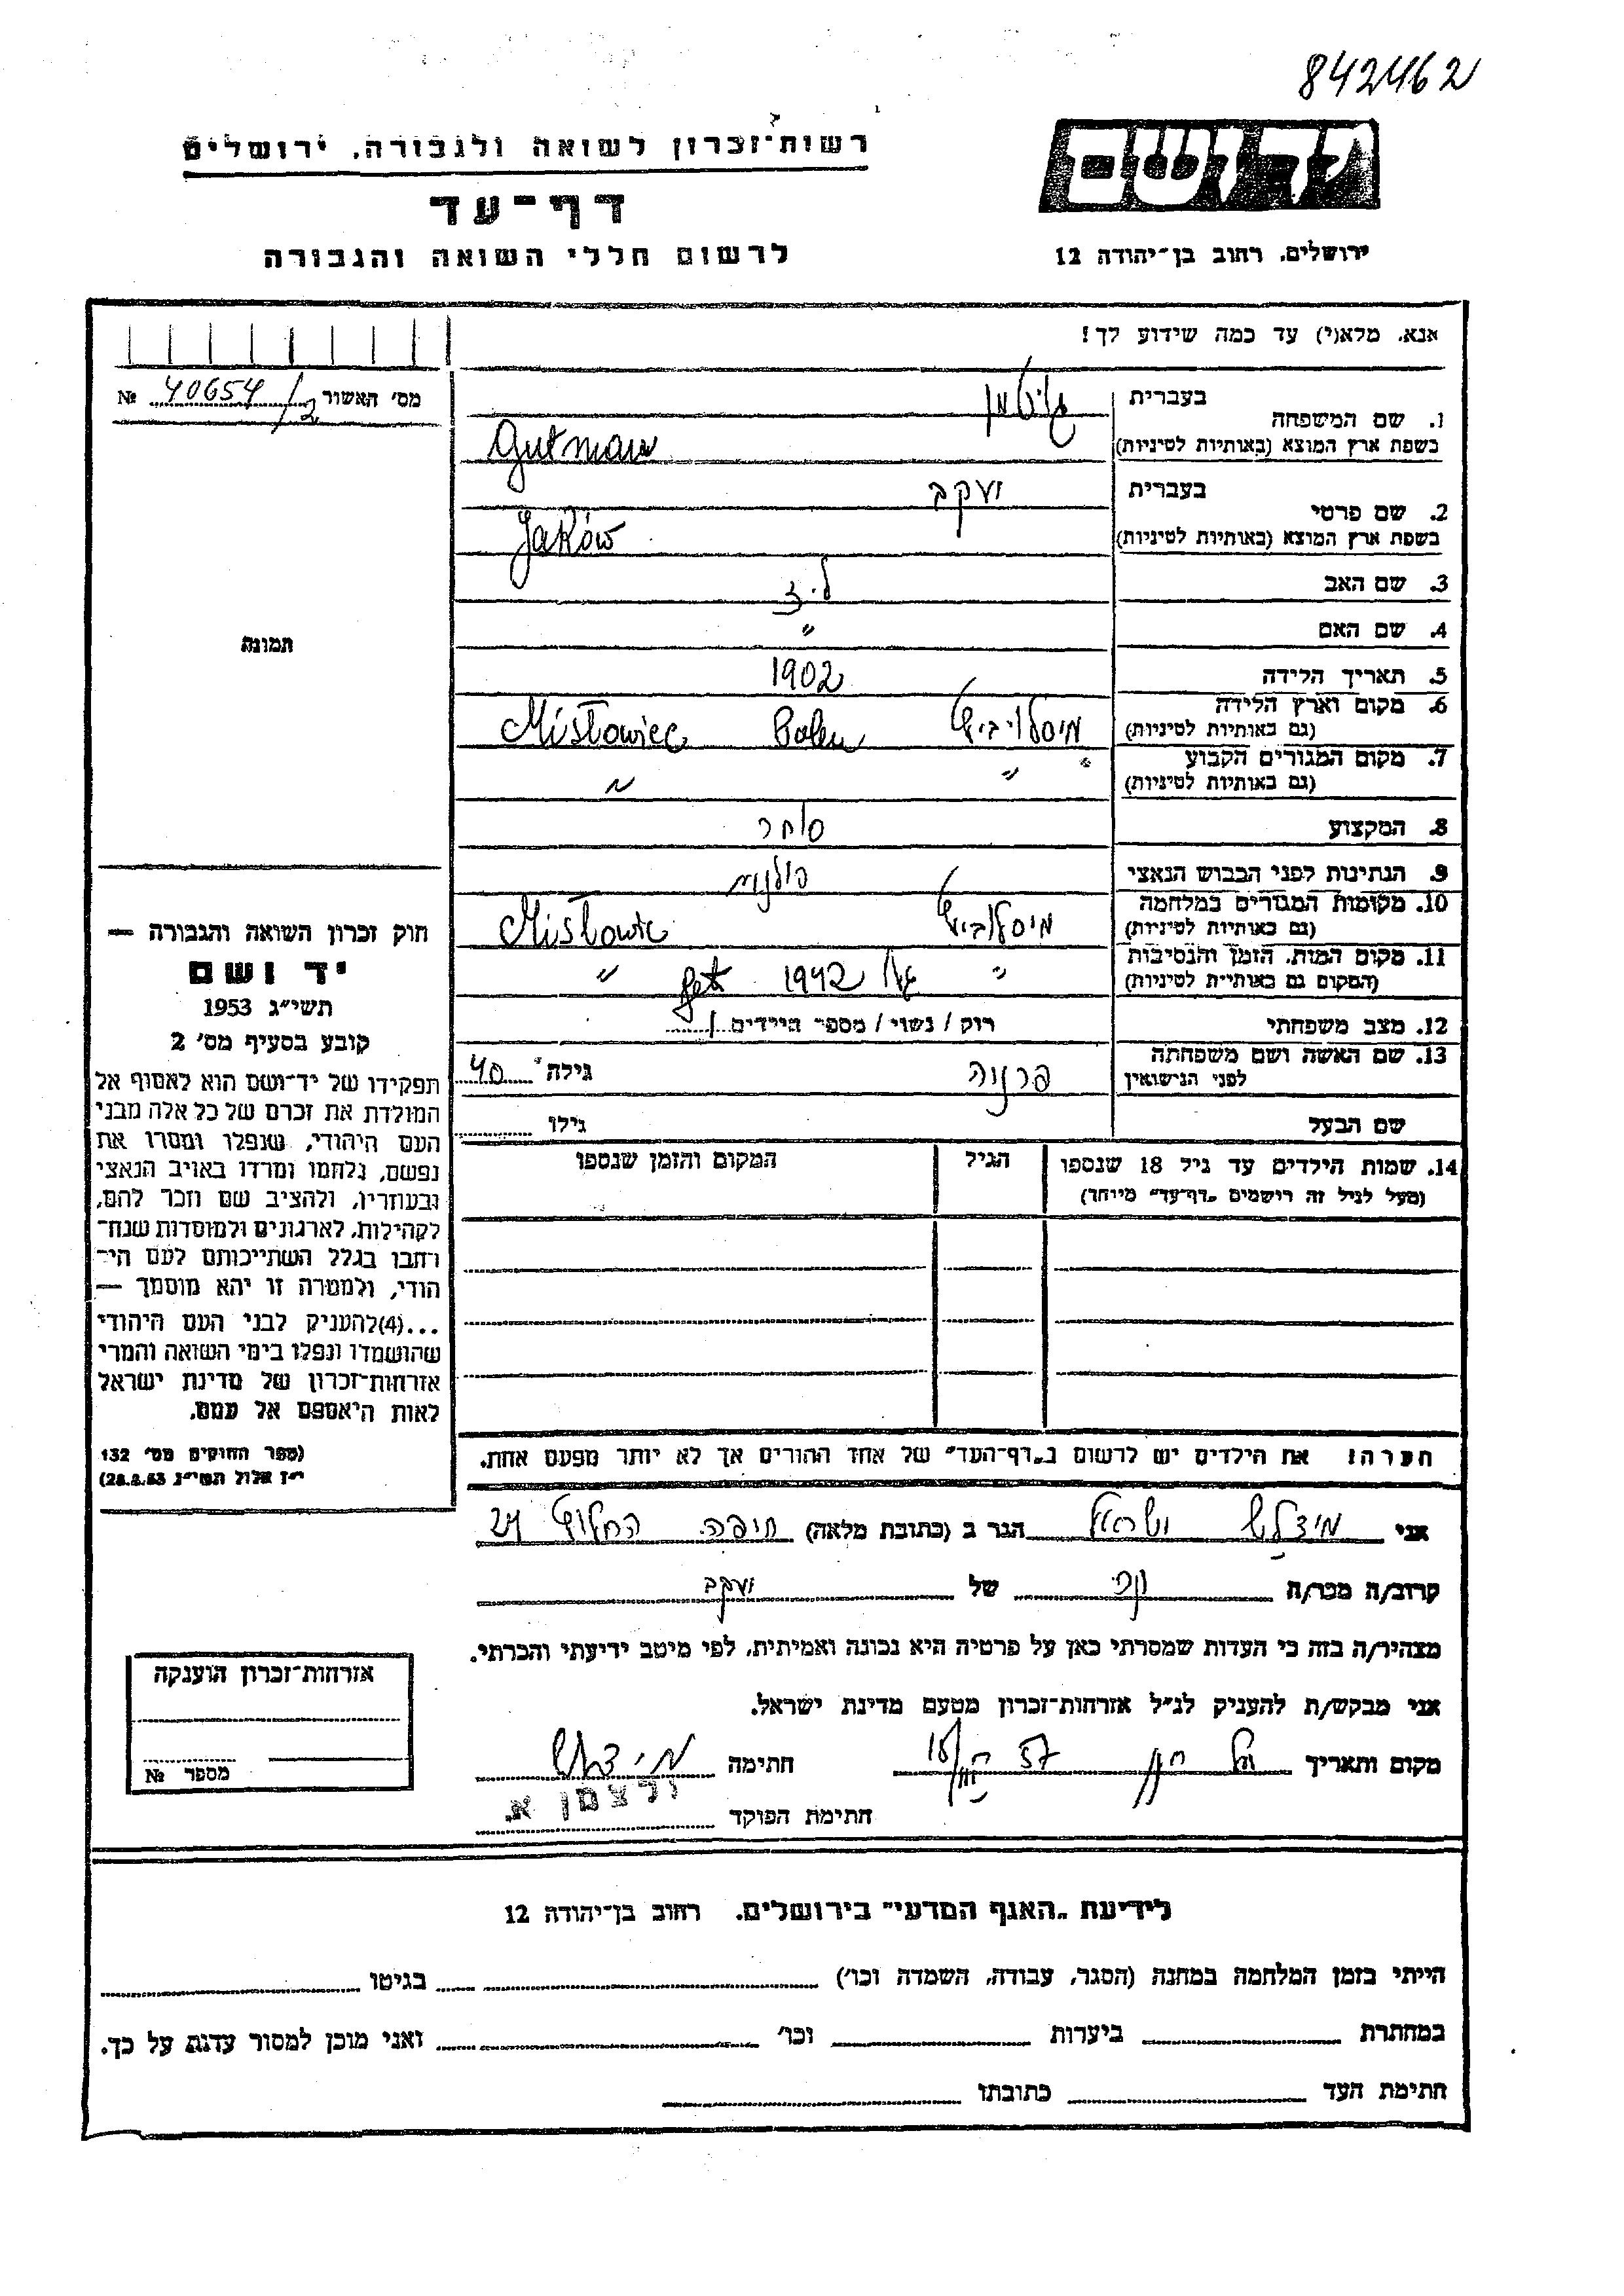 842462
רשות־זכרון לשואה ולגבורה, ירושלים
יד ושם
דף־עד
לרשום חללי השואה והגבורה
ירושלים, רחוב בן־יהודה 12
אנא, מלא(י) עד כמה שידוע לך!
מס׳ האשור 40654/2 №
1. שם המשפחה
בעברית גוטמן
בשפת ארץ המוצא (באותיות לטיניות) Gutman
2. שם פרטי
בעברית יעקב
בשפת ארץ המוצא (באותיות לטיניות) Jaków
3. שם האב ל.י.
4. שם האם "
תמונה
5. תאריך הלידה 1902
6. מקום וארץ הלידה
(גם באותיות לטיניות) Misłowiec Polen
7. מקום המגורים הקבוע " " "
(גם באותיות לטיניות)
8. המקצוע סוחר
9. הנתינות לפני הכבוש הנאצי פולנית
10. מקומות המגורים במלחמה
(גם באותיות לטיניות) Misłowic
11. מקום המות, הזמן והנסיבות
(המקום גם באותיות לטיניות) " 1942 "
12. מצב משפחתי רוק / נשוי / מספר הילדים 1
13. שם האשה ושם משפחתה
לפני הנישואין גילה 40
שם הבעל גילו
14. שמות הילדים עד גיל 18 שנספו הגיל המקום והזמן שנספו
(מעל לגיל זה רושמים „דף־עד״ מיוחד)
חוק זכרון השואה והגבורה —
יד ושם
תשי״ג 1953
קובע בסעיף מס׳ 2
תפקידו של יד־ושם הוא לאסוף אל
המולדת את זכרם של כל אלה מבני
העם היהודי, שנפלו ומסרו את
נפשם, נלחמו ומרדו באויב הנאצי
ובעוזריו, ולהציב שם וזכר להם,
לקהילות, לארגונים ולמוסדות שנח־
רחבו בגלל השתייכותם לעם הי־
הודי, ולמטרה זו יהא מוסמך —
...(4)להעניק לבני העם היהודי
שהושמדו ונפלו בימי השואה והמרי
אזרחות־זכרון של מדינת ישראל
לאות היאספם אל עמם.
(ספר החוקים מס׳ 132
י״ז אלול תשי״ג 28.8.53)
הערה! את הילדים יש לרשום ב„דף־העד״ של אחד ההורים אך לא יותר מפעם אחת.
אני ישראל הגר ב (כתובת מלאה) חיפה החלוץ
קרוב/ה מכר/ה של יעקב
מצהיר/ה בזה כי העדות שמסרתי כאן על פרטיה היא נכונה ואמיתית, לפי מיטב ידיעתי והכרתי.
אני מבקש/ת להעניק לנ״ל אזרחות־זכרון מטעם מדינת ישראל.
מקום ותאריך 57 חתימה
חתימת הפוקד
אזרחות־זכרון הוענקה
מספר №
לידיעת „האגף המדעי״ בירושלים, רחוב בן־יהודה 12
הייתי בזמן המלחמה במחנה (הסגר, עבודה, השמדה וכו׳) בגיטו
במחתרת ביערות וכו׳ ואני מוכן למסור עדות על כך.
חתימת העד כתובתו